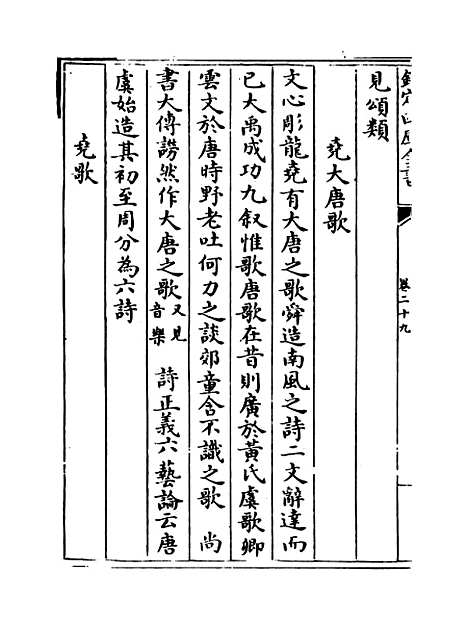 欽定四庫全書
卷二十九
見頌類
堯大唐歌
文心彫龍堯有大唐之歌舜造南風之詩二文辭達而
已大禹成功九叙惟歌唐歌在昔則廣於黃氏虞歌卿
雲文於唐時野老吐何力之談郊童含不識之歌 尚
書大傳謗然作大唐之歌又見音樂 詩正義六藝論云唐
虞始造其初至周分為六詩
堯歌